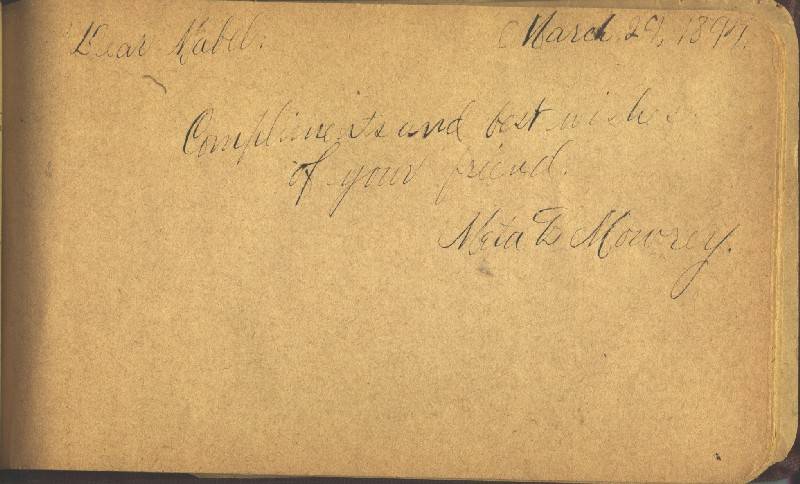 Dear Mabel: March 29, 1897.
Compliments and best wishes
of your friend.
Meta B Mowrey.